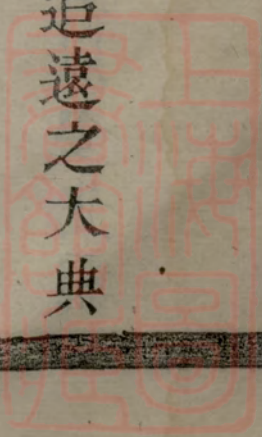 追遠之大典